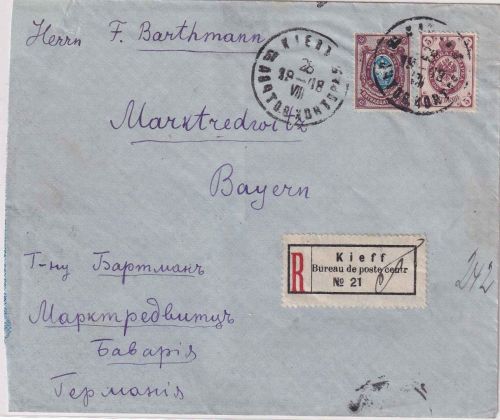 Herrn F. Barthmann
KIEFF
26
18
VII
Marktredwitz
Bayern
Kieff
R Bureau de poste centr
№ 21
242
Г-ну Бартманъ
Марктредвитцъ
Баварія
Германія